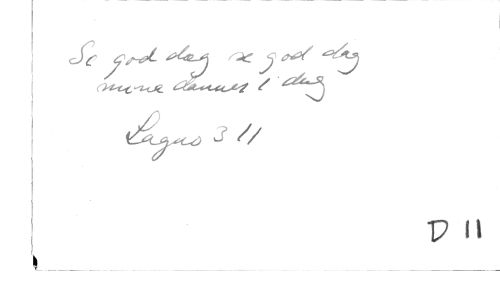 Se god dag se god dag
mine damer i dag
Lagus 3 11
D 11